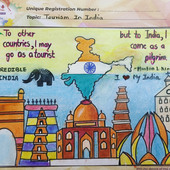 Unique Registration Number:
Topic: Tourism In India
To other
countries, I may
go as a tourist
but to India, I
come as a
pilgrim.
REDIBLE
INDIA
I My India.